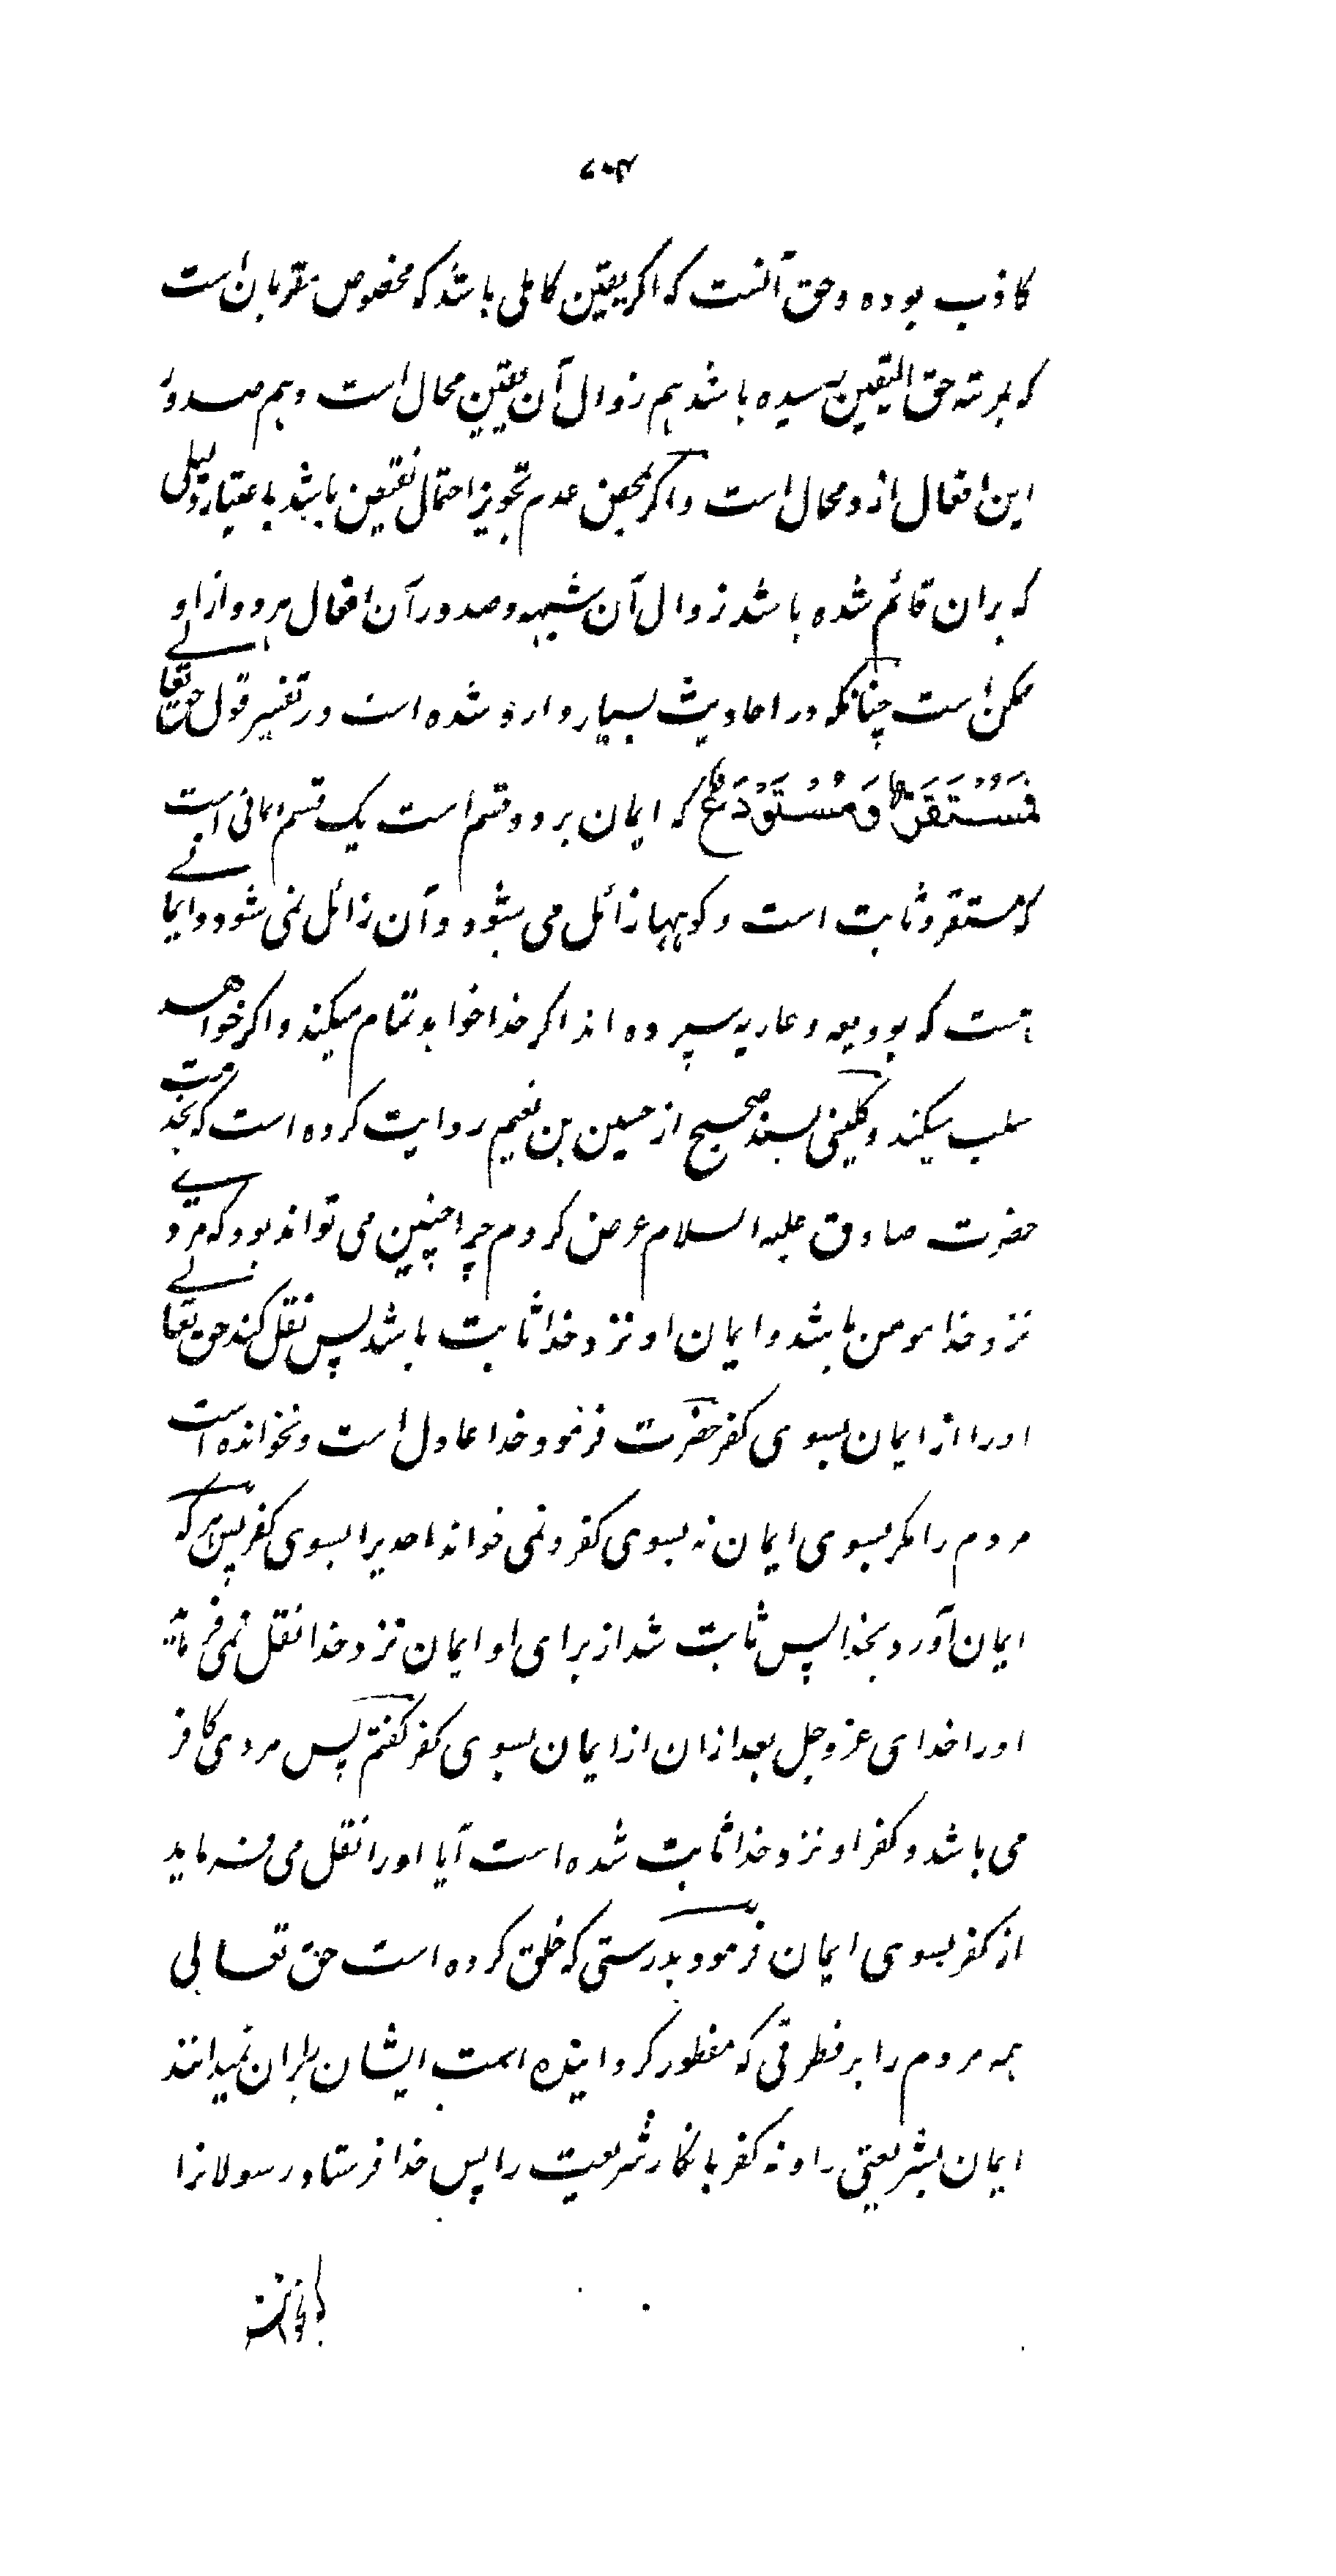 ۷۰۴
کاذب بوده و حق آنست که اگر یقین کاملی باشد که مخصوص مقربان است
که بمرتبه حق الیقین رسیده باشد هم زوال آن یقین محال است و هم صدور
این افعال از و محال است و اگر بمحض عدم تجویز احتمال نقیض باشد باعتبار دلیلی
که بران قائم شده باشد زوال آن بشبهه و صدور آن افعال هر دو از او
ممکن است چنانکه در احادیث بسیار وارد شده است در تفسیر قول حق تعالی
فَمُسْتَقَرٌّ وَمُسْتَوْدَعٌ که ایمان بر دو قسم است یک قسم ایمانی است
که مستقر و ثابت است و کوهها زائل می شود و آن زائل نمی شود و ایمانی
هست که بودیعه و عاریه سپرده اند اگر خدا خواهد تمام میکند و اگر خواهد
سلب میکند و کلینی بسند صحیح از حسین بن نعیم روایت کرده است که بخدمت
حضرت صادق علیه السلام عرض کردم چرا چنین می تواند بود که مردی
نزد خدا مومن باشد و ایمان او نزد خدا ثابت باشد پس نقل کند حق تعالی
او را از ایمان بسوی کفر حضرت فرمود خدا عادل است و نخوانده است
مردم را مگر بسوی ایمان نه بسوی کفر و نمی خواند احدیرا بسوی کفر پس هر که
ایمان آورد بخدا پس ثابت شد از برای او ایمان نزد خدا نقل نمی فرماید
او را خدای عز و جل بعد ازان از ایمان بسوی کفر گفتم پس مردی کافر
می باشد و کفر او نزد خدا ثابت شده است آیا او را نقل می فرماید
از کفر بسوی ایمان فرمود بدرستی که خلق کرده است حق تعالی
همه مردم را بر فطرتی که مفطور گردانیده است ایشان را بران نمیدانند
ایمان بشریعتی را و نه کفر بانکار شریعت را پس خدا فرستاد رسولانرا